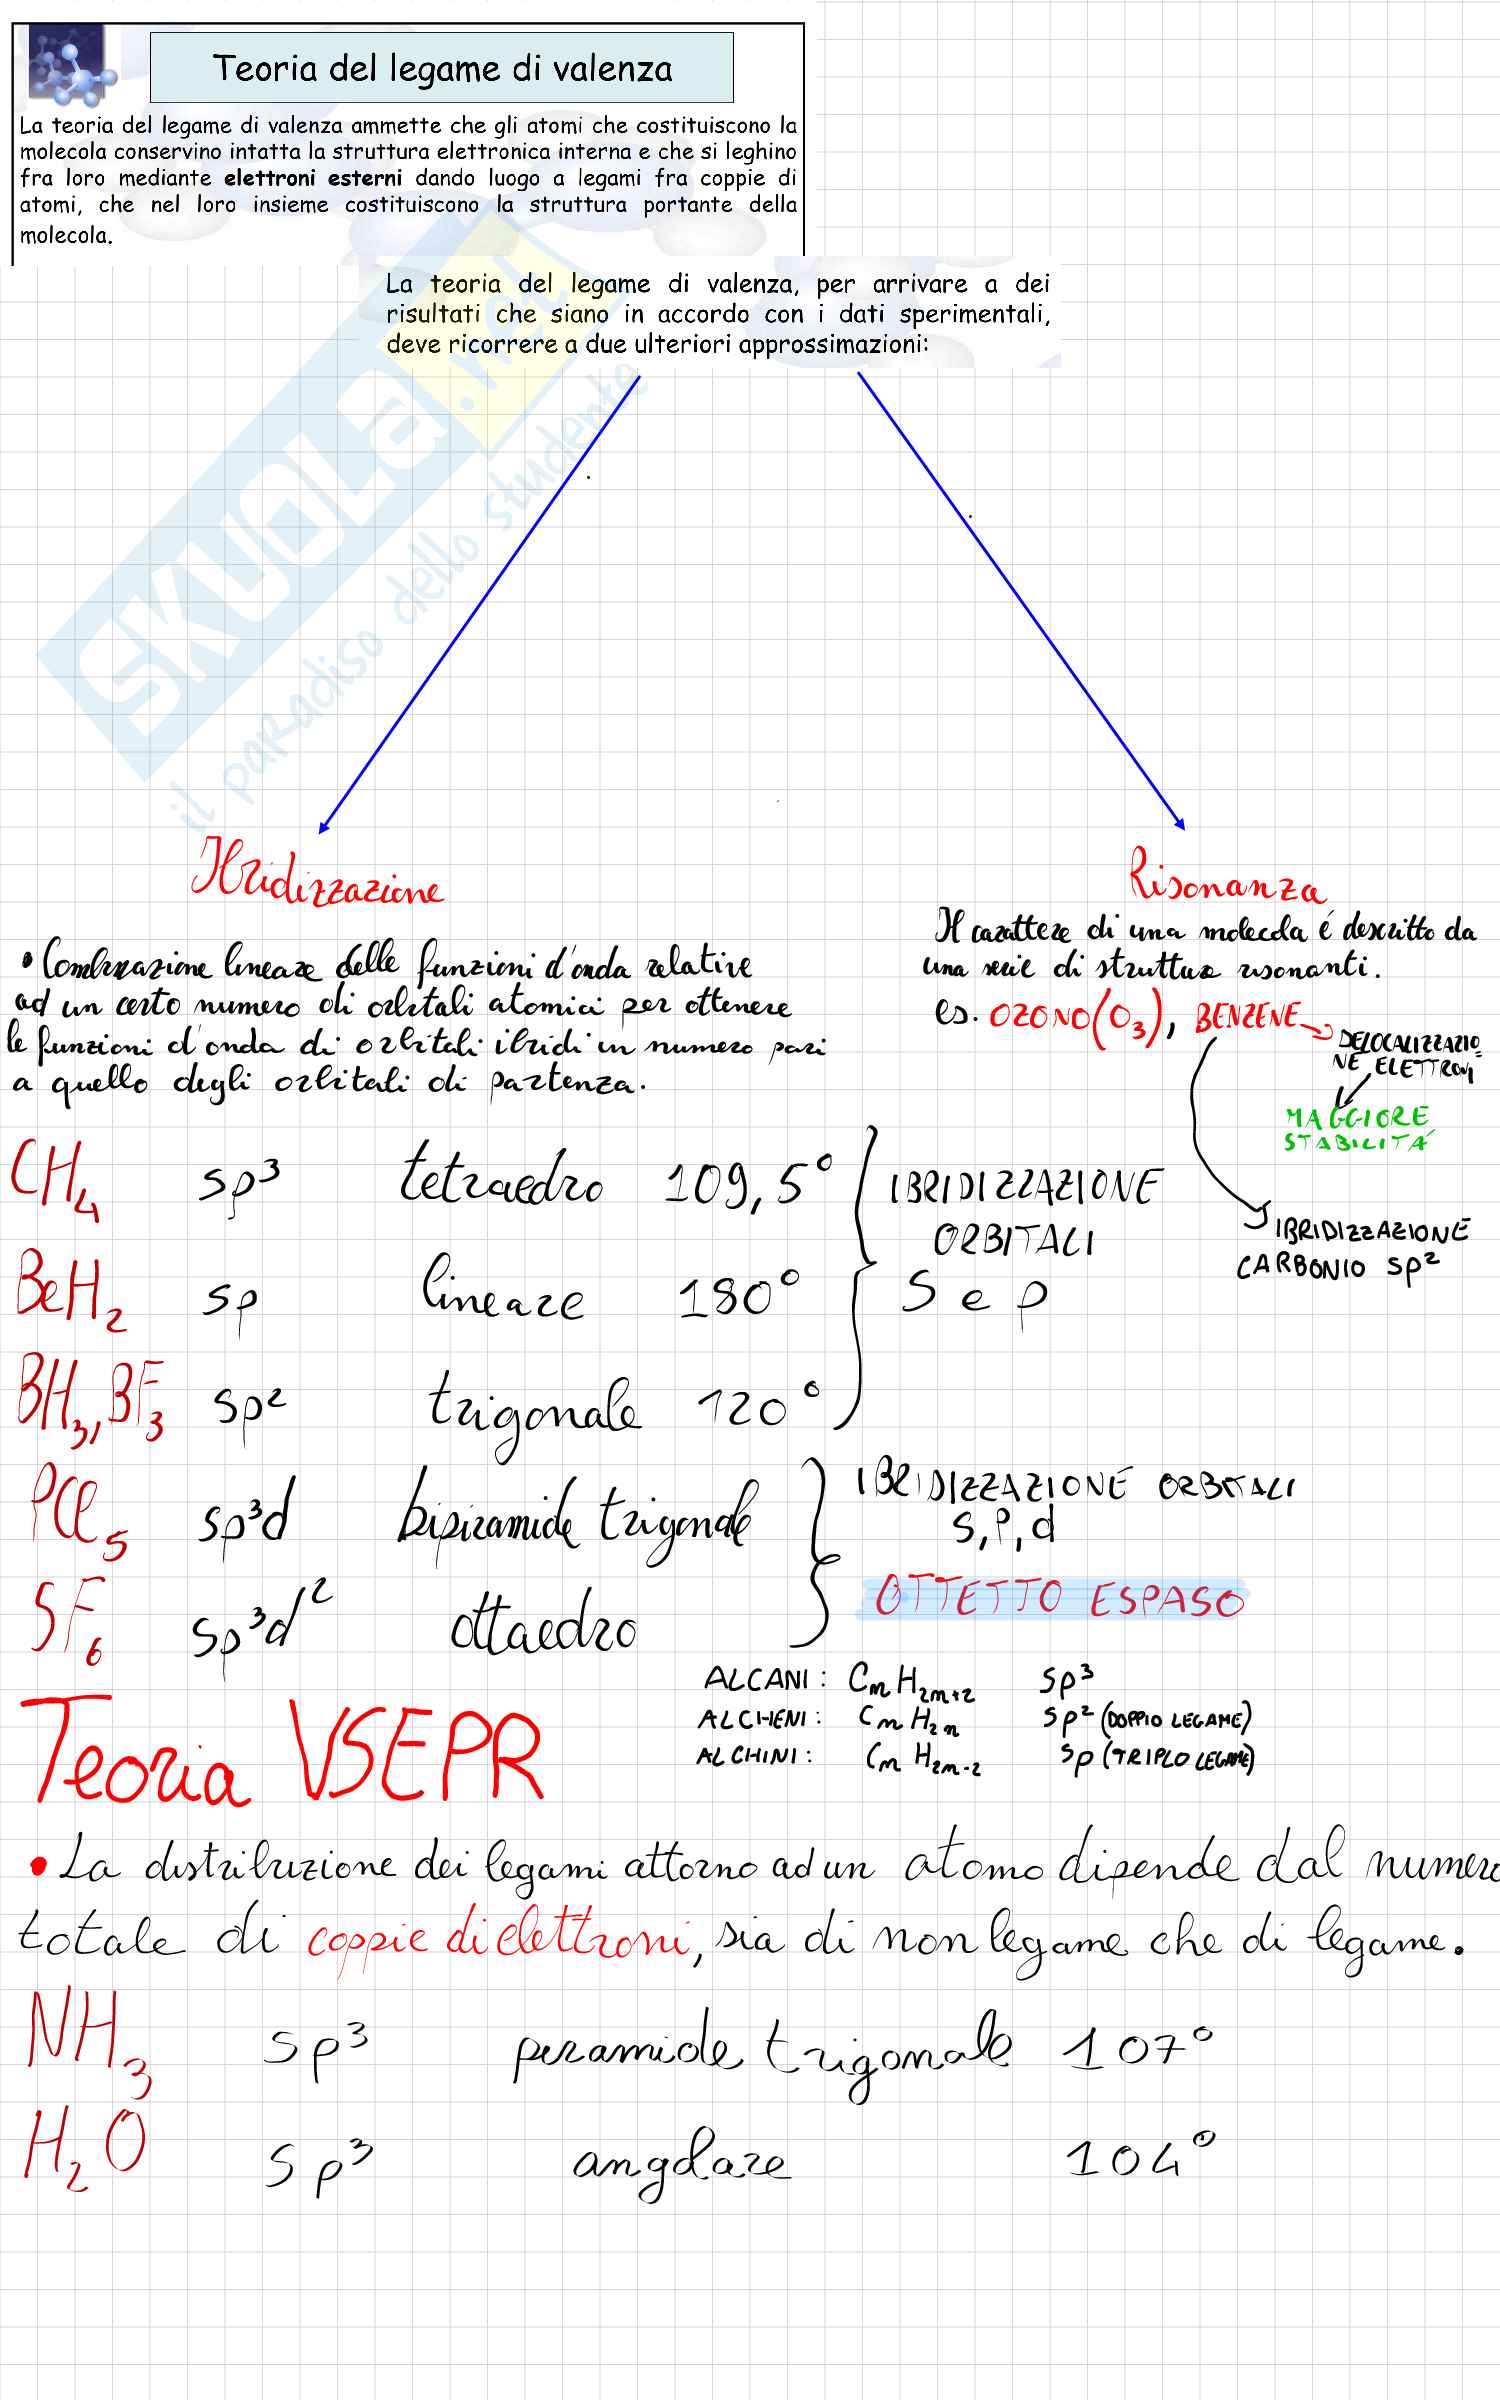 Teoria del legame di valenza
La teoria del legame di valenza ammette che gli atomi che costituiscono la
molecola conservino intatta la struttura elettronica interna e che si leghino
fra loro mediante elettroni esterni dando luogo a legami fra coppie di
atomi, che nel loro insieme costituiscono la struttura portante della
molecola.
La teoria del legame di valenza, per arrivare a dei
risultati che siano in accordo con i dati sperimentali,
deve ricorrere a due ulteriori approssimazioni:
SKUOLA.net
il paradiso dello studente
Ibridizzazione
• Combinazione lineare delle funzioni d'onda relative
ad un certo numero di orbitali atomici per ottenere
le funzioni d'onda di orbitali ibridi in numero pari
a quello degli orbitali di partenza.
Risonanza
Il carattere di una molecola é descritto da
una serie di struttura risonanti.
es. OZONO (O₃), BENZENE
DELOCALIZZAZIO-
NE ELETTRONI
MAGGIORE
STABILITÁ
IBRIDIZZAZIONE
CARBONIO sp²
CH₄ sp³ tetraedro 109,5°
BeH₂ sp lineare 180°
BH₃, BF₃ sp² trigonale 120°
IBRIDIZZAZIONE
ORBITALI
S e p
PCl₅ sp³d bipiramide trigonale
SF₆ sp³d² ottaedro
IBRIDIZZAZIONE ORBITALI
s, p, d
OTTETTO ESPASO
ALCANI: CₙH₂ₙ₊₂ sp³
ALCHENI: CₙH₂ₙ sp² (DOPPIO LEGAME)
ALCHINI: CₙH₂ₙ₋₂ sp (TRIPLO LEGAME)
Teoria VSEPR
• La distribuzione dei legami attorno ad un atomo dipende dal numero
totale di coppie di elettroni, sia di non legame che di legame.
NH₃ sp³ piramide trigonale 107°
H₂O sp³ angolare 104°